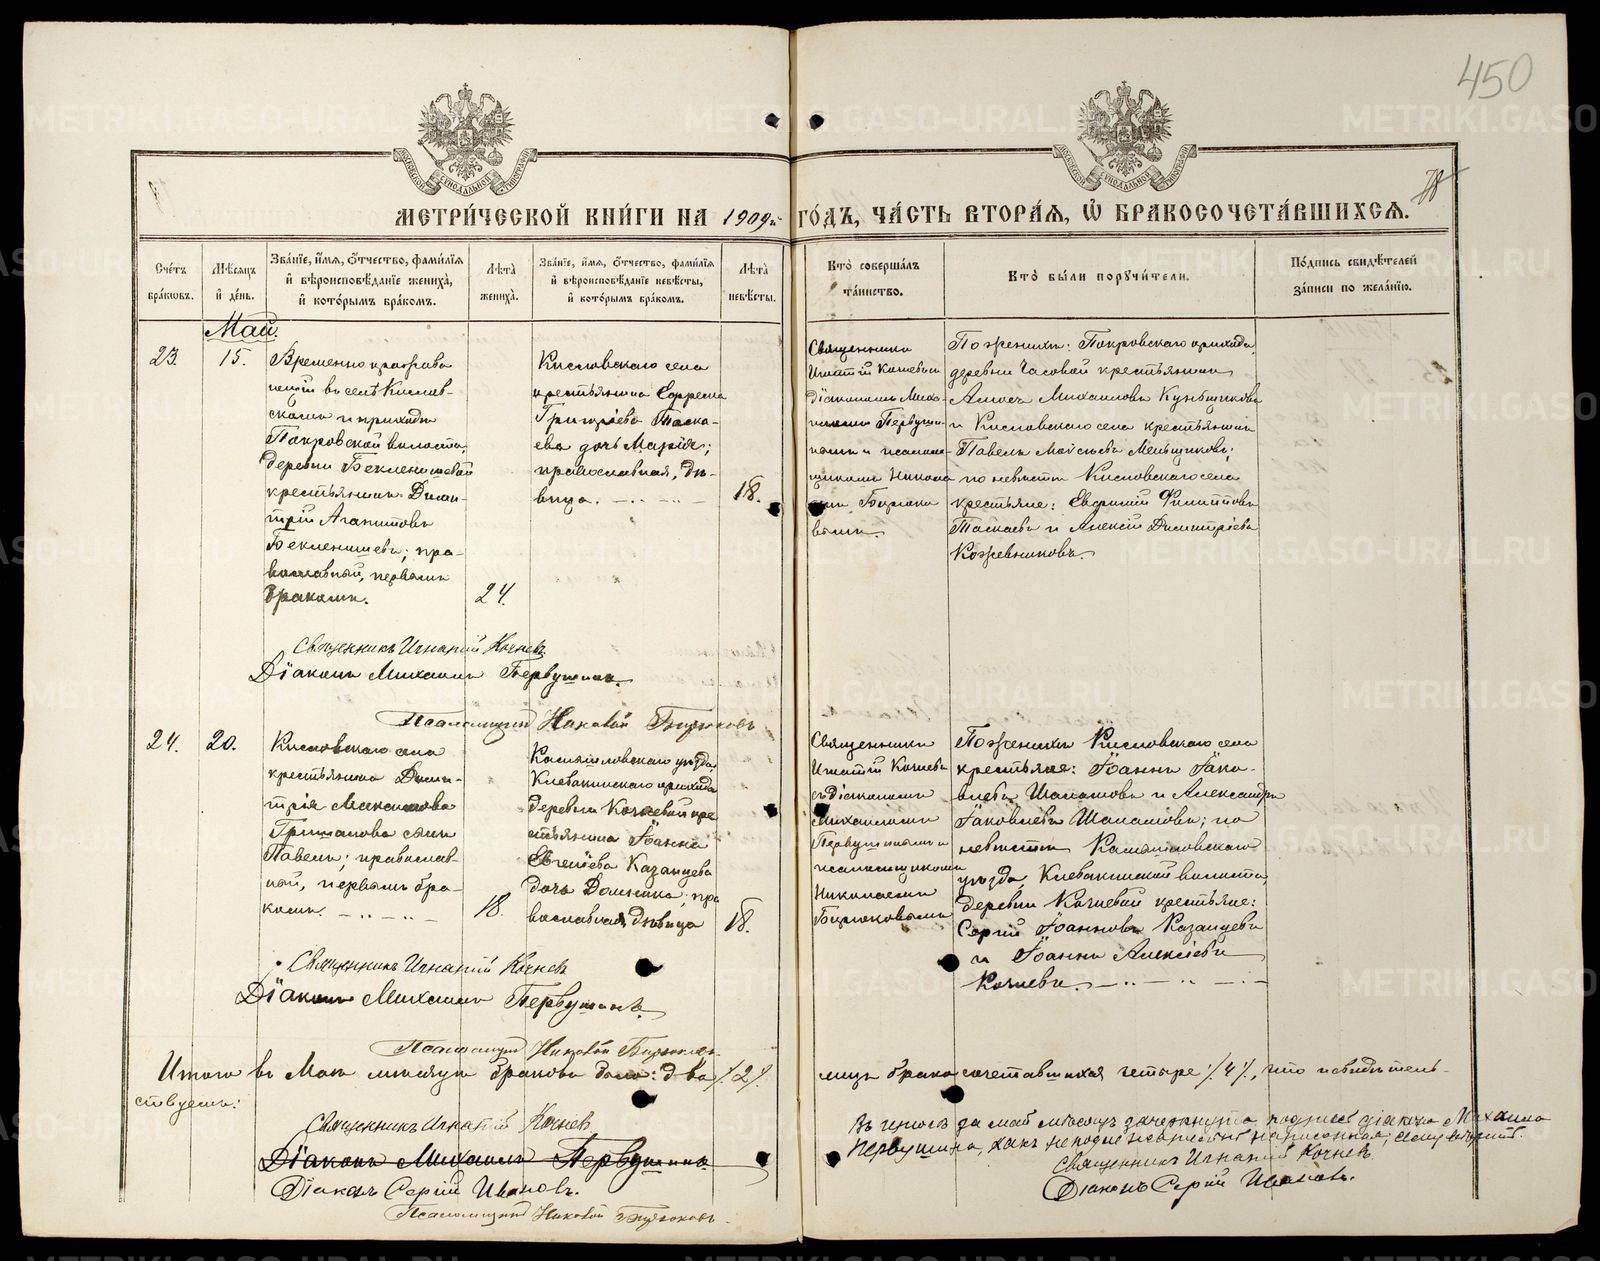 450
78
МЕТРИ́ЧЕСКОЙ КНИ́ГИ НА 1909й ГО́ДЪ, ЧА́СТЬ ВТОРА́Я, Ѽ БРАКОСОЧЕТА́ВШИХСЯ.
Сче́тъ бра́ковъ.
Мѣ́сяцъ и҆ де́нь.
Зва́нїе, и҆́мя, ѻ҆́тчество, фами́лїя и҆ вѣроисповѣ́данїе жениха̀, и҆ кото́рымъ бра́комъ.
Лѣ́та жениха̀.
Зва́нїе, и҆́мя, ѻ҆́тчество, фами́лїя и҆ вѣроисповѣ́данїе невѣ́сты, и҆ кото́рымъ бра́комъ.
Лѣ́та невѣ́сты.
Кто̀ соверша́лъ та́инство.
Кто̀ бы́ли поручи́тели.
По́дпись свидѣ́телей за́писи по жела́нїю.
Май.
23.
15.
Временно прожива
ющій въ селѣ Кислов-
скомъ и прихода
Покровской волости,
деревни Бекленищевой
крестьянинъ Дими-
трій Агапитовъ
Бекленищевъ; пра-
вославный, первымъ
бракомъ.
24.
Кисловскаго села
крестьянина Ефрема
Григоріева Таска-
ева дочь Марія;
православная, дѣ-
вица.
18.
Священникъ
Игнатій Кочневъ съ
діакономъ Миха-
иломъ Первуши-
нымъ и псалом-
щикомъ Никола
емъ Бирюко
вымъ.
По женихѣ: Покровскаго прихода,
деревни Часовой крестьянинъ
Амосъ Михаиловъ Кунгщиковъ
и Кисловскаго села крестьянинъ
Павелъ Моѵсеевъ Меньщиковъ;
по невѣстѣ Кисловскаго села
крестьяне: Евфимій Филипповъ
Таскаевъ и Алексій Димитріевъ
Кожевниковъ.
Священникъ Игнатій Кочневъ
Діаконъ Михаилъ Первушинъ.
Псаломщикъ Николай Бирюковъ
24.
20.
Кисловскаго села
крестьянина Дими-
трія Максимова
Григанова сынъ
Павелъ; православ-
ный, первымъ бра-
комъ.
18.
Камышловскаго уѣзда,
Клевакинскаго прихода
деревни Кочневой кре
стьянина Іоанна
Евгеніева Казанцева
дочь Домника, пра
вославная, дѣвица
18.
Священникъ
Игнатій Кочневъ
съ діакономъ
Михаиломъ
Первушинымъ и
псаломщикомъ
Николаемъ
Бирюковымъ
По женихѣ Кисловскаго села
крестьяне: Іоаннъ Іако-
влевъ Шалашовъ и Александръ
Іаковлевъ Шалашовъ; по
невѣстѣ Камышловскаго
уѣзда, Клевакинской волости,
деревни Кочневой крестьяне:
Сергій Іоанновъ Казанцевъ
и Іоаннъ Алексіевъ
Кочневъ.
Священникъ Игнатій Кочневъ
Діаконъ Михаилъ Первушинъ.
Псаломщикъ Николай Бирюковъ
Итого въ Маѣ мѣсяцѣ браковъ было: два /.2/., лицъ бракосочетавшихся четыре /.4/., что и свидѣтель-
ствуемъ:
Священникъ Игнатій Кочневъ
Діаконъ Михаилъ Первушинъ
Діаконъ Сергій Ивановъ.
Псаломщикъ Николай Бирюковъ.
Въ итогѣ за май мѣсяцъ зачеркнута подпись діакона Михаила
Первушина, какъ неправильно написанная;
Священникъ Игнатій Кочневъ
Діаконъ Сергій Ивановъ.
METRIKI.GASO-URAL.RU